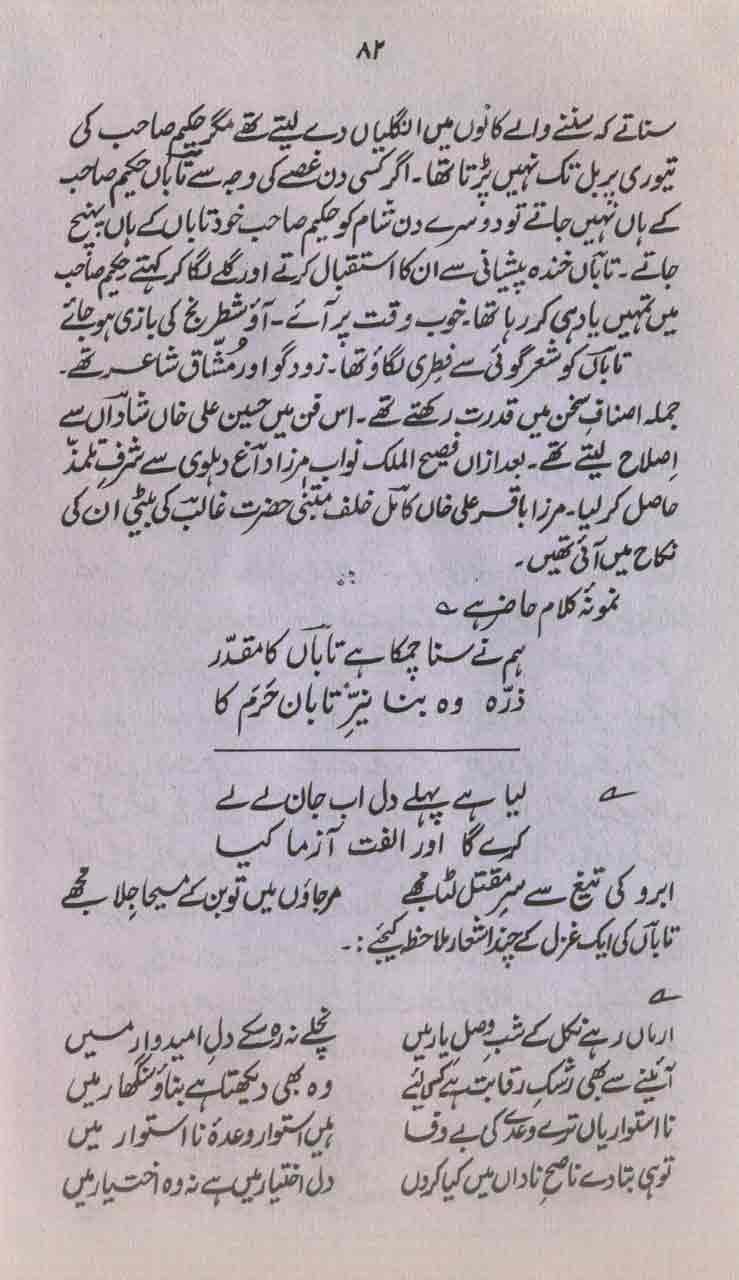 ۸۲
سناتے کہ سننے والے کانوں میں انگلیاں دے لیتے تھے مگر حکیم صاحب کی
تیوری پر بل تک نہیں پڑتا تھا۔ اگر کسی دن غصے کی وجہ سے تاباں حکیم صاحب
کے ہاں نہیں جاتے تو دوسرے دن شام کو حکیم صاحب خود تاباں کے ہاں پہنچ
جاتے۔ تاباں خندہ پیشانی سے ان کا استقبال کرتے اور گلے لگا کر کہتے حکیم صاحب
میں تمہیں یاد ہی کر رہا تھا۔ خوب وقت پر آئے۔ آؤ شطرنج کی بازی ہو جائے
تاباں کو شعر گوئی سے فطری لگاؤ تھا۔ زود گو اور مُشّاق شاعر تھے۔
جملہ اصنافِ سخن میں قدرت رکھتے تھے۔ اس فن میں حسین علی خاں شاداں سے
اِصلاح لیتے تھے۔ بعد ازاں فصیح الملک نواب مرزا داغ دہلوی سے شرفِ تلمذ
حاصل کر لیا۔ مرزا باقر علی خاں کامل خلف متبنیٰ حضرت غالب کی بیٹی ان کی
نکاح میں آئی تھیں۔
نمونۂ کلام حاضر ہے ؎
ہم نے سنا چمکا ہے تاباں کا مقدّر
ذرّہ وہ بنا نیرِّ تابان حَرَم کا
؎ لیا ہے پہلے دل اب جان لے لے
کرے گا اور الفت آزما کیا
ابرو کی تیغ سے سرِ مقتل لٹا مجھے مر جاؤں میں تو بن کے مسیحا جِلا مجھے
تاباں کی ایک غزل کے چند اشعار ملاحظہ کیجئے :۔
؎
ارماں رہے نکل کے شبِ وصلِ یار میں نچلے نہ رہ سکے دلِ امیدوار میں
آئینے سے بھی رَشکِ رقابت ہے کس لئے وہ بھی دیکھتا ہے بناؤ سنگھار میں
نا استواریاں ترے وعدے کی بے وفا ہیں استوار وعدۂ نا استوار میں
تو ہی بتا دے ناصحِ ناداں میں کیا کروں دل اختیار میں ہے نہ وہ اختیار میں